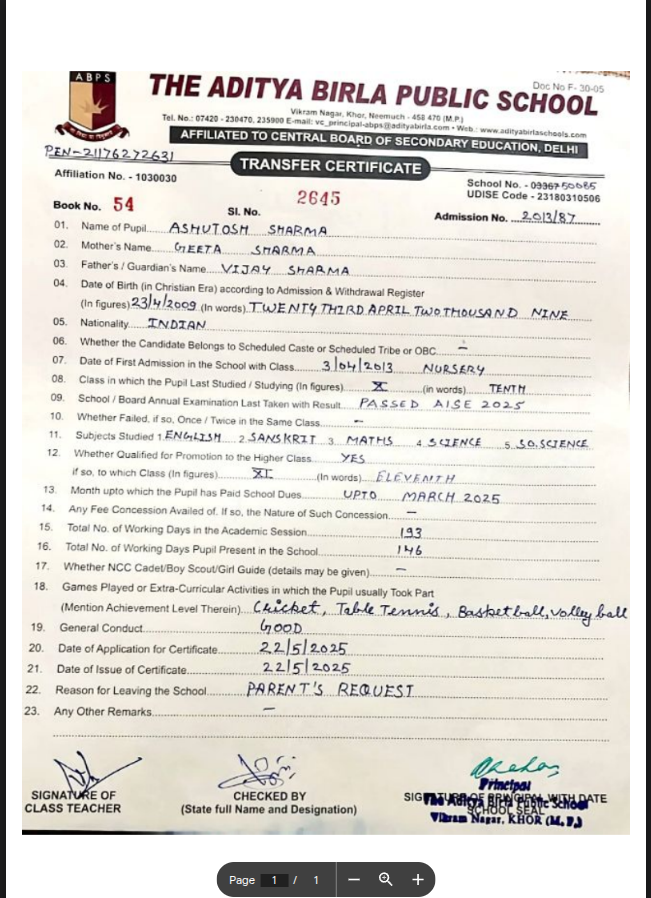 ABPS
Doc No F- 30-05
THE ADITYA BIRLA PUBLIC SCHOOL
Vikram Nagar, Khor, Neemuch - 458 470 (M.P.)
Tel. No.: 07420 - 230470, 235900 E-mail: vc_principal-abps@adityabirla.com • Web.: www.adityabirlaschools.com
AFFILIATED TO CENTRAL BOARD OF SECONDARY EDUCATION, DELHI
PEN-21176272631
TRANSFER CERTIFICATE
Affiliation No. - 1030030
School No. - 50085
UDISE Code - 23180310506
Book No. 54 Sl. No. 2645 Admission No. 2013/87
01. Name of Pupil ASHUTOSH SHARMA
02. Mother's Name GEETA SHARMA
03. Father's / Guardian's Name VIJAY SHARMA
04. Date of Birth (in Christian Era) according to Admission & Withdrawal Register
(In figures) 23/4/2009 (In words) TWENTY THIRD APRIL TWO THOUSAND NINE
05. Nationality INDIAN
06. Whether the Candidate Belongs to Scheduled Caste or Scheduled Tribe or OBC -
07. Date of First Admission in the School with Class 3/04/2013 NURSERY
08. Class in which the Pupil Last Studied / Studying (In figures) X (in words) TENTH
09. School / Board Annual Examination Last Taken with Result PASSED AISE 2025
10. Whether Failed, if so, Once / Twice in the Same Class -
11. Subjects Studied 1. ENGLISH 2. SANSKRIT 3. MATHS 4. SCIENCE 5. SO.SCIENCE
12. Whether Qualified for Promotion to the Higher Class YES
if so, to which Class (In figures) XI (In words) ELEVENTH
13. Month upto which the Pupil has Paid School Dues UPTO MARCH 2025
14. Any Fee Concession Availed of. If so, the Nature of Such Concession -
15. Total No. of Working Days in the Academic Session 193
16. Total No. of Working Days Pupil Present in the School 146
17. Whether NCC Cadet/Boy Scout/Girl Guide (details may be given) -
18. Games Played or Extra-Curricular Activities in which the Pupil usually Took Part
(Mention Achievement Level Therein) Cricket, Table Tennis, Basketball, Volley ball
19. General Conduct GOOD
20. Date of Application for Certificate 22/5/2025
21. Date of Issue of Certificate 22/5/2025
22. Reason for Leaving the School PARENT'S REQUEST
23. Any Other Remarks -
SIGNATURE OF
CLASS TEACHER
CHECKED BY
(State full Name and Designation)
Principal
SIGNATURE OF PRINCIPAL WITH DATE
The Aditya Birla Public School
SCHOOL SEAL
Vikram Nagar, KHOR (M. P.)
Page 1 / 1